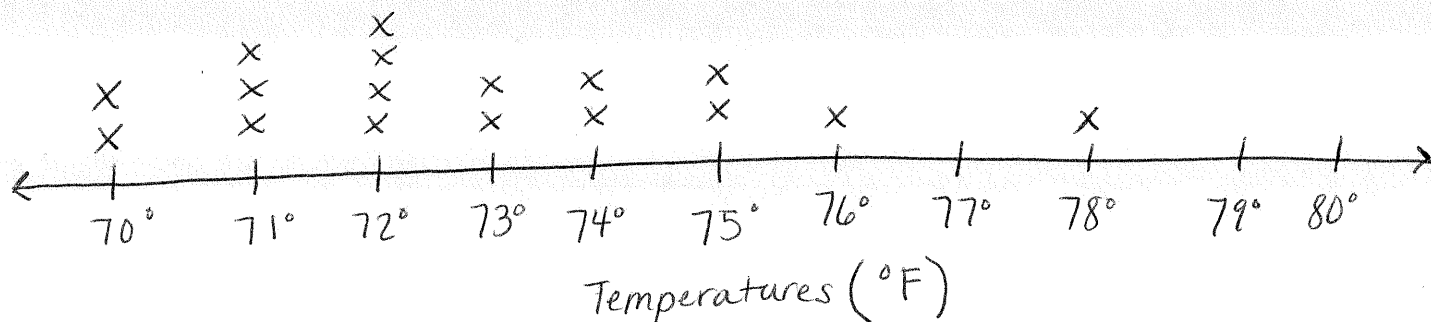 x
x
x x x
x x x x x
x x x x x x x x
70° 71° 72° 73° 74° 75° 76° 77° 78° 79° 80°
Temperatures (°F)